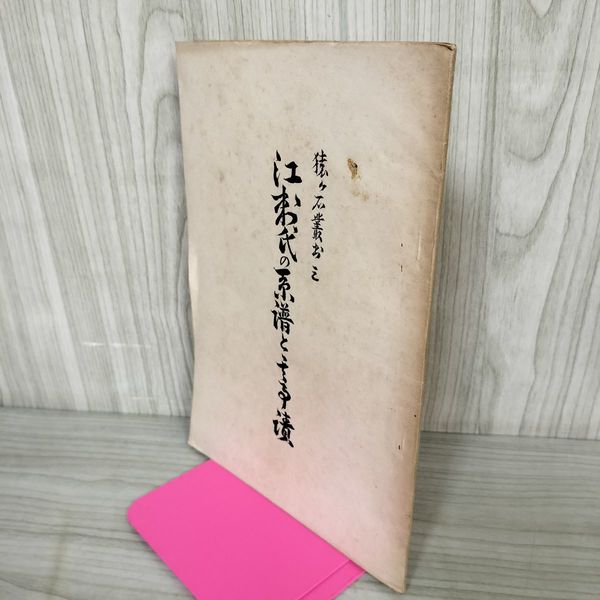 猿ヶ石叢書 三
江刺氏の系譜と事蹟